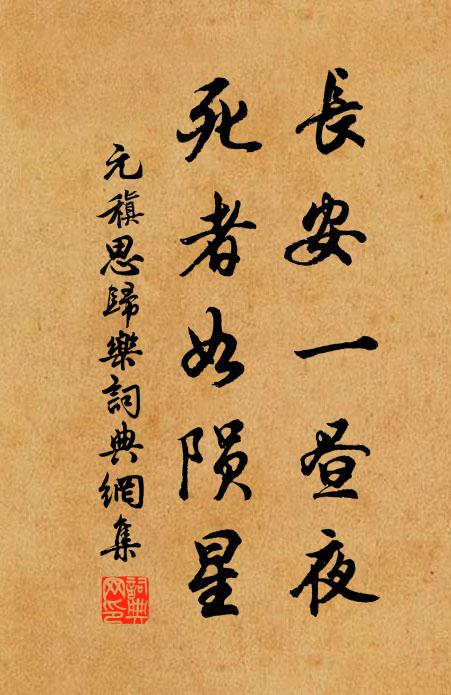 長安一昼夜
死者如陨星
元稹思歸樂詞典網集
詞典
网印